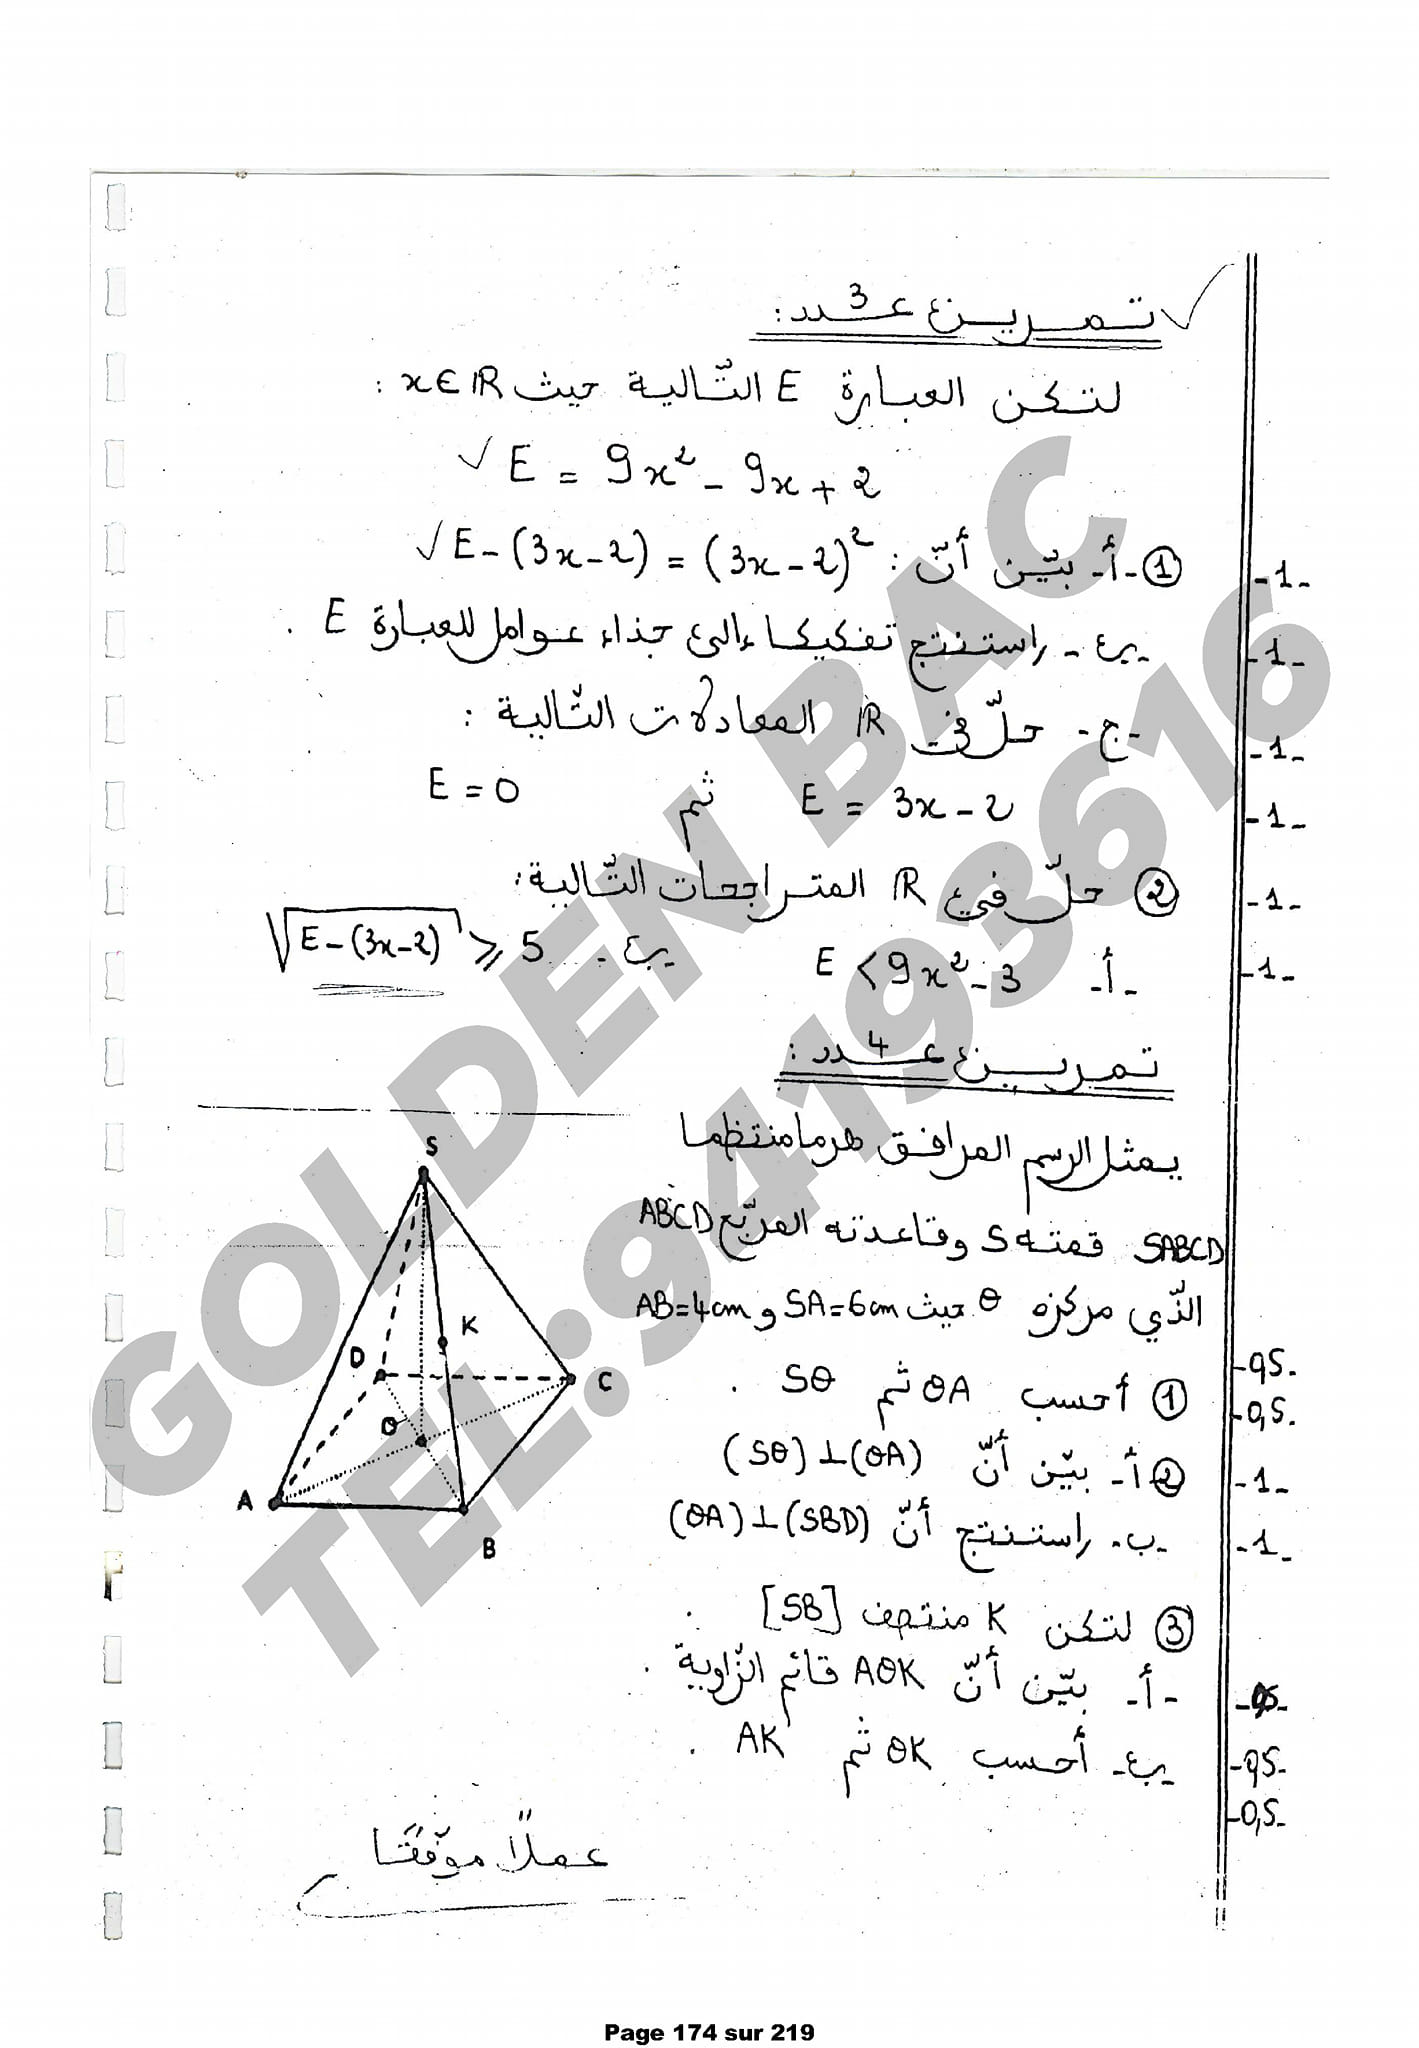 تمرين عـ3ـدد :
لتكن العبارة E التّالية حيث x∈ℝ :
E = 9x² - 9x + 2
①-أ- بيّن أنّ : E-(3x-2) = (3x-2)²
-1-
-ب- استنتج تفكيكا إلى جذاء عوامل للعبارة E .
-1-
-ج- حلّ في ℝ المعادلات التّالية :
-1-
E = 3x-2 ثم E = 0
-1-
② حلّ في ℝ المتراجحات التّالية :
-1-
-أ- E < 9x²-3 -ب- √(E-(3x-2)) ⩾ 5
-1-
تمرين عـ4ـدد :
يمثل الرسم المرافق هرما منتظما
SABCD قمته S وقاعدته المربّع ABCD
الذّي مركزه θ حيث SA=6cm و AB=4cm
① أحسب θA ثم Sθ .
-0,5-
-0,5-
② أ- بيّن أنّ (Sθ)⊥(θA)
-1-
-ب- استنتج أنّ (θA)⊥(SBD)
-1-
③ لتكن K منتصف [SB]
-أ- بيّن أنّ AθK قائم الزّاوية .
-ب- أحسب θK ثم AK .
-0,5-
-0,5-
S
K
D
C
θ
A
B
عملًا موفّقًا
GOLDEN BAC
TEL:94193616
Page 174 sur 219